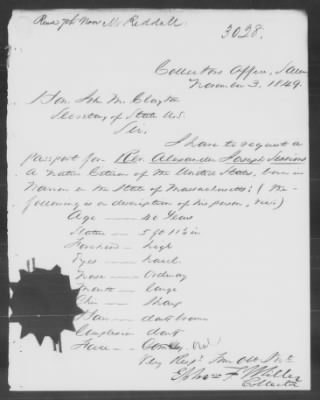 Recd 7th Nov
3028.
Collector's Office, Salem
November 3. 1849.
Hon. John M. Clayton
Secretary of State U.S.
Sir.
I have to request a
passport for Rev. Alexander Joseph Sessions
a Native Citizen of the United States, born in
Warren in the State of Massachusetts: (The
following is a description of his person, viz:)
Age — 40 Years
Stature — 5 ft 11½ in
Forehead — high
Eyes — hazel
Nose — ordinary
Mouth — large
Chin — Sharp
Hair — dark brown
Complexion dark
Face — Oval
Very Respy. Your Obt Svt
Miller
Collector